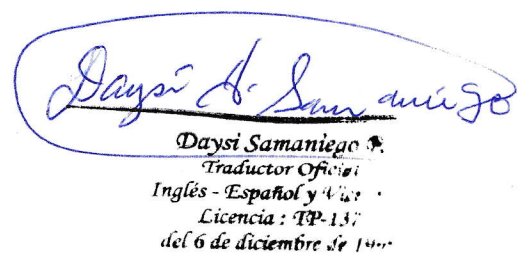 Daysi A. Samaniego
Daysi Samaniego
Traductor Oficial
Inglés - Español y
Licencia : TP-137
del 6 de diciembre de